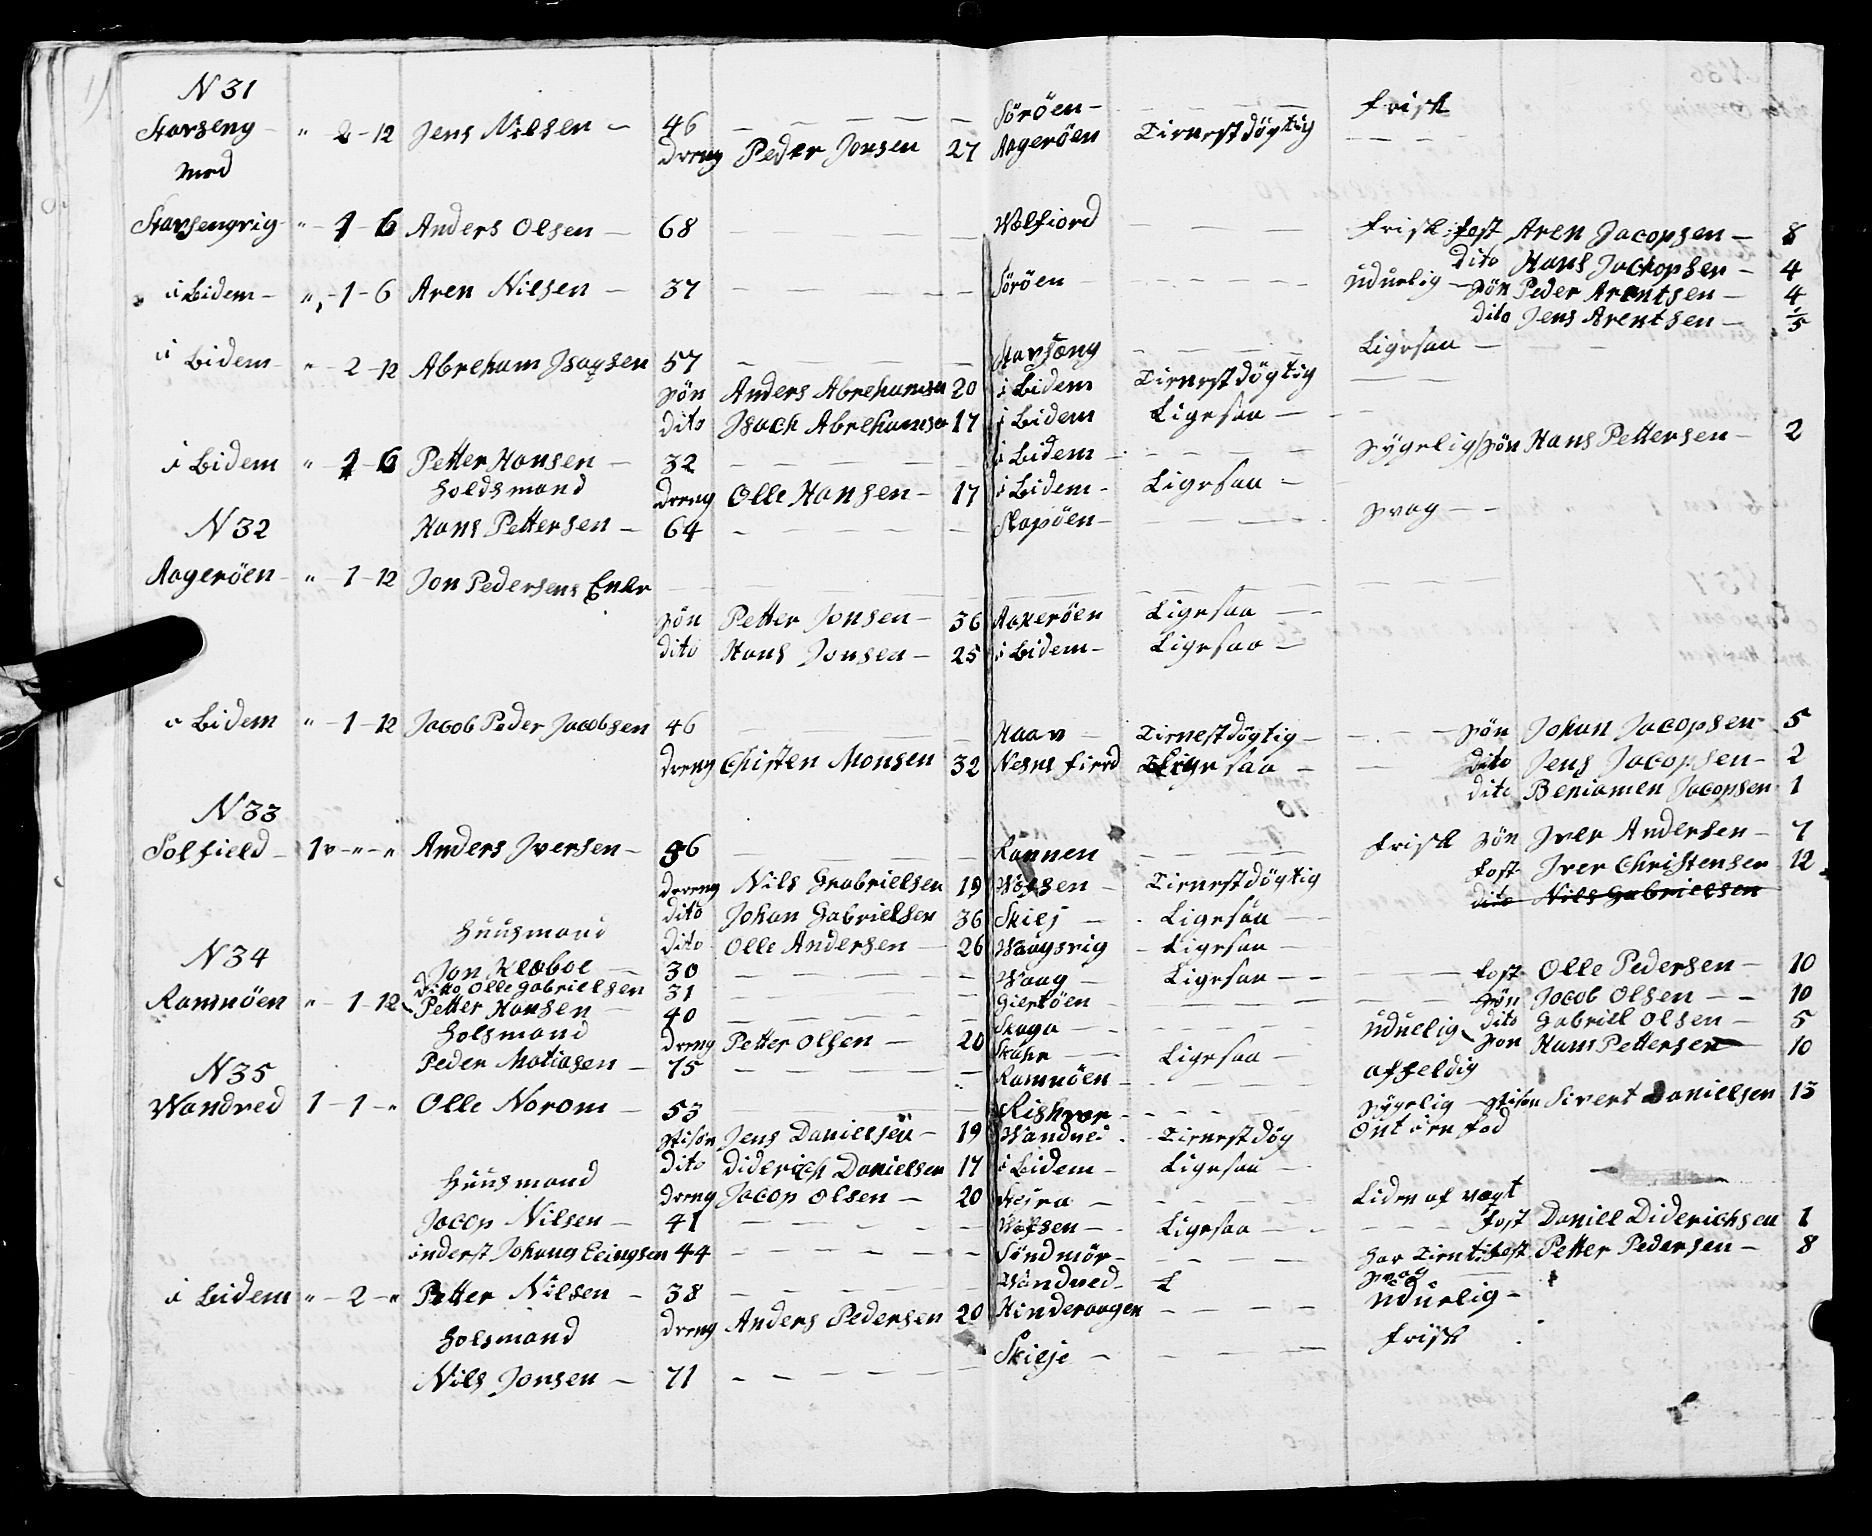 N 31
Storseng - " 2 - 12 Jens Nilsen - 46 Söröen - frisk
med dreng Peder Jonsen 27 Aageröen Tienestdögtig
Storsengvig " - 1 - 6 Anders Olsen - 68 Welfiord frisk fost Aren Jacopsen - 8
dito Hans Jackopsen - 4
i bidem - " - 1 - 6 Aren Nilsen - 37 Söröen uduelig - sön Peder Arentsen - 4
dito Jens Arentsen - 1/5
i bidem - " - 2 - 12 Abreham Isaqsen 57 Storseng Ligesaa -
sön Anders Abrehamsen 20 i bidem Tienestdögtig
dito Isach Abrehamsen 17 i bidem Ligesaa -
i bidem " - 1 - 6 Petter Hansen - 32 i bidem sygelig sön Hans Pettersen - 2
holdsmand dreng Olle Hansen - 17 i bidem - Ligesaa -
N 32 Hans Pettersen - 64 Skopöen - svag -
Aageröen - " - 1 - 12 Jon Pedersens Enke
sön Petter Jonsen - 36 Aakeröen Ligesaa -
dito Hans Jonsen - 25 i bidem - Ligesaa -
i bidem " - 1 - 12 Jacob Peder Jacobsen 46 Haav - Tienestdögtig - sön Johan Jacopsen - 5
dreng Christen Monsen 32 Nesne fierd Ligesaa - dito Jens Jacopsen - 2
dito Beniamen Jacopsen 1
N 33
Solfield - 1 v - " - " Anders Iversen - 56 Rannen frisk sön Iver Andersen - 7
dreng Nils Gabrielsen 19 Wefsen - Tienestdögtig fost Iver Christensen 12
dito Johan Gabrielsen 36 Skiej - Ligesaa - dito Nils Gabrielsen
huusmand dito Olle Andersen - 26 Waagsvig - Ligesaa -
N 34 Jon Klæboe - 30 Waag - Ligesaa - fost Olle Pedersen - 10
dito Olle Gabrielsen 31 Gierköen - sön Jacob Olsen - 10
Ramnöen " - 1 - 12 Petter Hansen - 40 Skaga uduelig dito Gabriel Olsen - 5
holsmand dreng Petter Olsen - 20 Skahr - Ligesaa - sön Hans Pettersen 10
N 35 Peder Matiasen - 75 Ramnöen - affeldig
Wandved 1 - 1 - " Olle Norom - 53 Rishver - sygelig - stisön Sivert Danielsen 13
stisön Jens Danielsen - 19 Wandved - Tienestdög ont i en fod
dito Diderich Danielsen 17 i bidem - Ligesaa -
huusmand dreng Jacop Olsen - 20 Skeira - Liden af vægt
Jacop Nilsen - 41 Wefsen - Ligesaa - fost Daniel Diderichsen 1
inderst Johans Elingsen 44 Söndmör - har Tient fost Petter Pedersen - 8
svag
i bidem " - 2 - " Petter Nilsen - 38 Wandved - uduelig -
holsmand dreng Anders Pedersen 20 Hinderaagen frisk
Nils Jonsen - 71 Skilje -